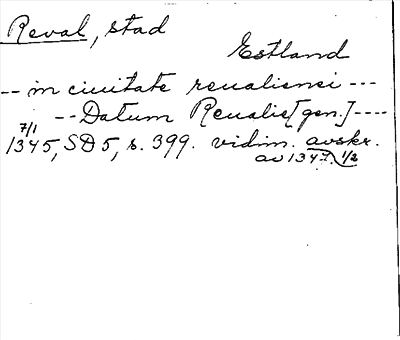 Reval, stad
Estland
-- in ciuitate reualiensi ---
-- Datum Reualie [gen.] ----
7/1
1345, SD 5, s. 399. vidim. avskr.
av 1347 1/2